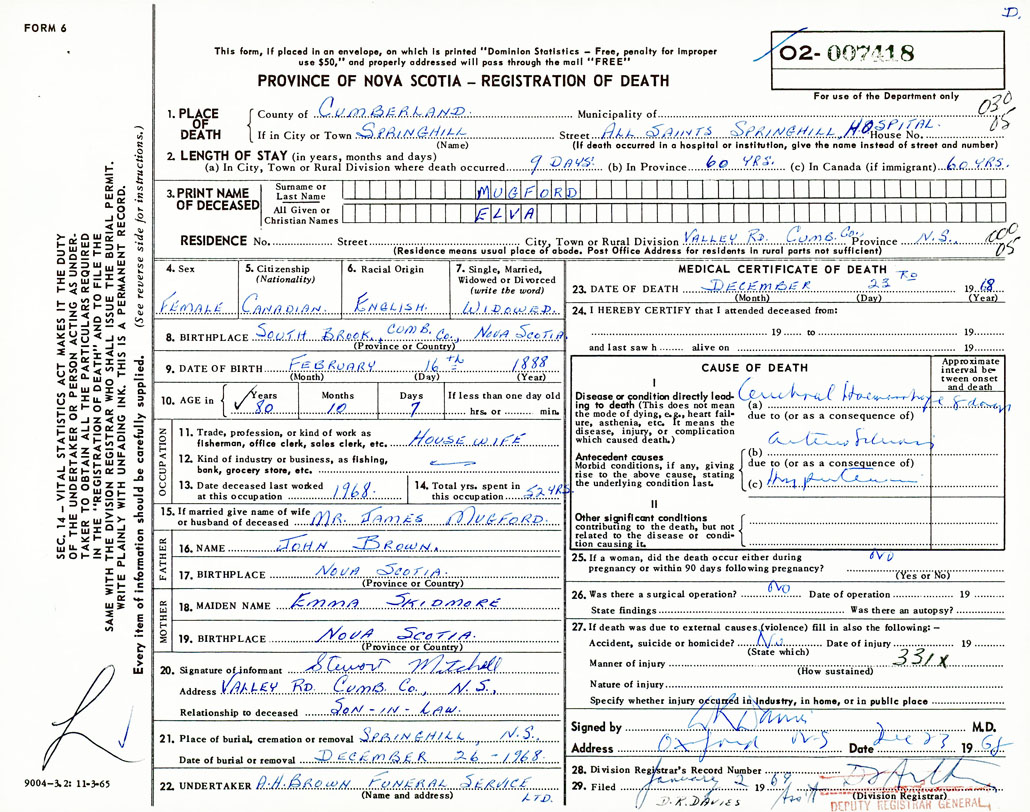 D.
FORM 6
This form, if placed in an envelope, on which is printed "Dominion Statistics – Free, penalty for improper
use $50," and properly addressed will pass through the mail "FREE"
PROVINCE OF NOVA SCOTIA – REGISTRATION OF DEATH
02- 007418
For use of the Department only
030
05
1. PLACE OF DEATH
County of CUMBERLAND. Municipality of
If in City or Town SPRINGHILL Street ALL SAINTS SPRINGHILL HOSPITAL. House No.
(Name) (If death occurred in a hospital or institution, give the name instead of street and number)
2. LENGTH OF STAY (in years, months and days)
(a) In City, Town or Rural Division where death occurred 9 DAYS. (b) In Province 60 YRS. (c) In Canada (if immigrant) 60 YRS.
3. PRINT NAME OF DECEASED
Surname or Last Name MUGFORD
All Given or Christian Names ELVA
RESIDENCE No. Street City, Town or Rural Division VALLEY RD. CUMB. Co., Province N.S.,
(Residence means usual place of abode. Post Office Address for residents in rural parts not sufficient)
000
05
4. Sex
FEMALE
5. Citizenship (Nationality)
CANADIAN.
6. Racial Origin
ENGLISH.
7. Single, Married, Widowed or Divorced (write the word)
WIDOWED.
8. BIRTHPLACE SOUTH BROOK, CUMB. Co., NOVA SCOTIA
(Province or Country)
9. DATE OF BIRTH FEBRUARY 16th 1888
(Month) (Day) (Year)
10. AGE in Years Months Days If less than one day old
80 10 7 hrs. or min.
OCCUPATION
11. Trade, profession, or kind of work as
fisherman, office clerk, sales clerk, etc. HOUSE WIFE
12. Kind of industry or business, as fishing,
bank, grocery store, etc.
13. Date deceased last worked
at this occupation 1968.
14. Total yrs. spent in
this occupation 52 YRS.
15. If married give name of wife
or husband of deceased MR. JAMES MUGFORD.
FATHER
16. NAME JOHN BROWN.
17. BIRTHPLACE NOVA SCOTIA.
(Province or Country)
MOTHER
18. MAIDEN NAME EMMA SKIDMORE
19. BIRTHPLACE NOVA SCOTIA.
(Province or Country)
20. Signature of informant Stewart Mitchell
Address VALLEY RD. CUMB. Co., N.S.,
Relationship to deceased SON-IN-LAW.
21. Place of burial, cremation or removal SPRINGHILL, N.S.
Date of burial or removal DECEMBER 26-1968.
22. UNDERTAKER A.H. BROWN FUNERAL SERVICE LTD.
(Name and address)
MEDICAL CERTIFICATE OF DEATH
23. DATE OF DEATH DECEMBER 23 RD 1968
(Month) (Day) (Year)
24. I HEREBY CERTIFY that I attended deceased from:
19 to 19
and last saw h alive on 19
CAUSE OF DEATH
Approximate interval between onset and death
I
Disease or condition directly leading to death (This does not
mean the mode of dying, e.g., heart failure, asthenia, etc. It means the
disease, injury, or complication which caused death.)
(a) Cerebral Haemorrhage 8 days
due to (or as a consequence of)
Antecedent causes
Morbid conditions, if any, giving
rise to the above cause, stating
the underlying condition last.
(b)
due to (or as a consequence of)
(c) Hypertension
II
Other significant conditions
contributing to the death, but not
related to the disease or condition causing it.
25. If a woman, did the death occur either during
pregnancy or within 90 days following pregnancy? NO
(Yes or No)
26. Was there a surgical operation? NO Date of operation 19
State findings Was there an autopsy?
27. If death was due to external causes (violence) fill in also the following: –
Accident, suicide or homicide? No Date of injury 19
(State which)
Manner of injury 331X
(How sustained)
Nature of injury
Specify whether injury occurred in Industry, in home, or in public place
Signed by M.D.
Address Oxford NS Date Dec 23 1968
28. Division Registrar's Record Number
29. Filed January 2 1969
(Division Registrar)
D.K. DAVIES
DEPUTY REGISTRAR GENERAL
SEC. 14 – VITAL STATISTICS ACT MAKES IT THE DUTY
OF THE UNDERTAKER OR PERSON ACTING AS UNDER-
TAKER TO OBTAIN ALL THE PARTICULARS REQUIRED
IN THE "REGISTRATION OF DEATH" AND TO FILE THE
SAME WITH THE DIVISION REGISTRAR WHO SHALL ISSUE THE BURIAL PERMIT.
WRITE PLAINLY WITH UNFADING INK. THIS IS A PERMANENT RECORD.
Every item of information should be carefully supplied. (See reverse side for instructions.)
9004-3.2: 11-3-65